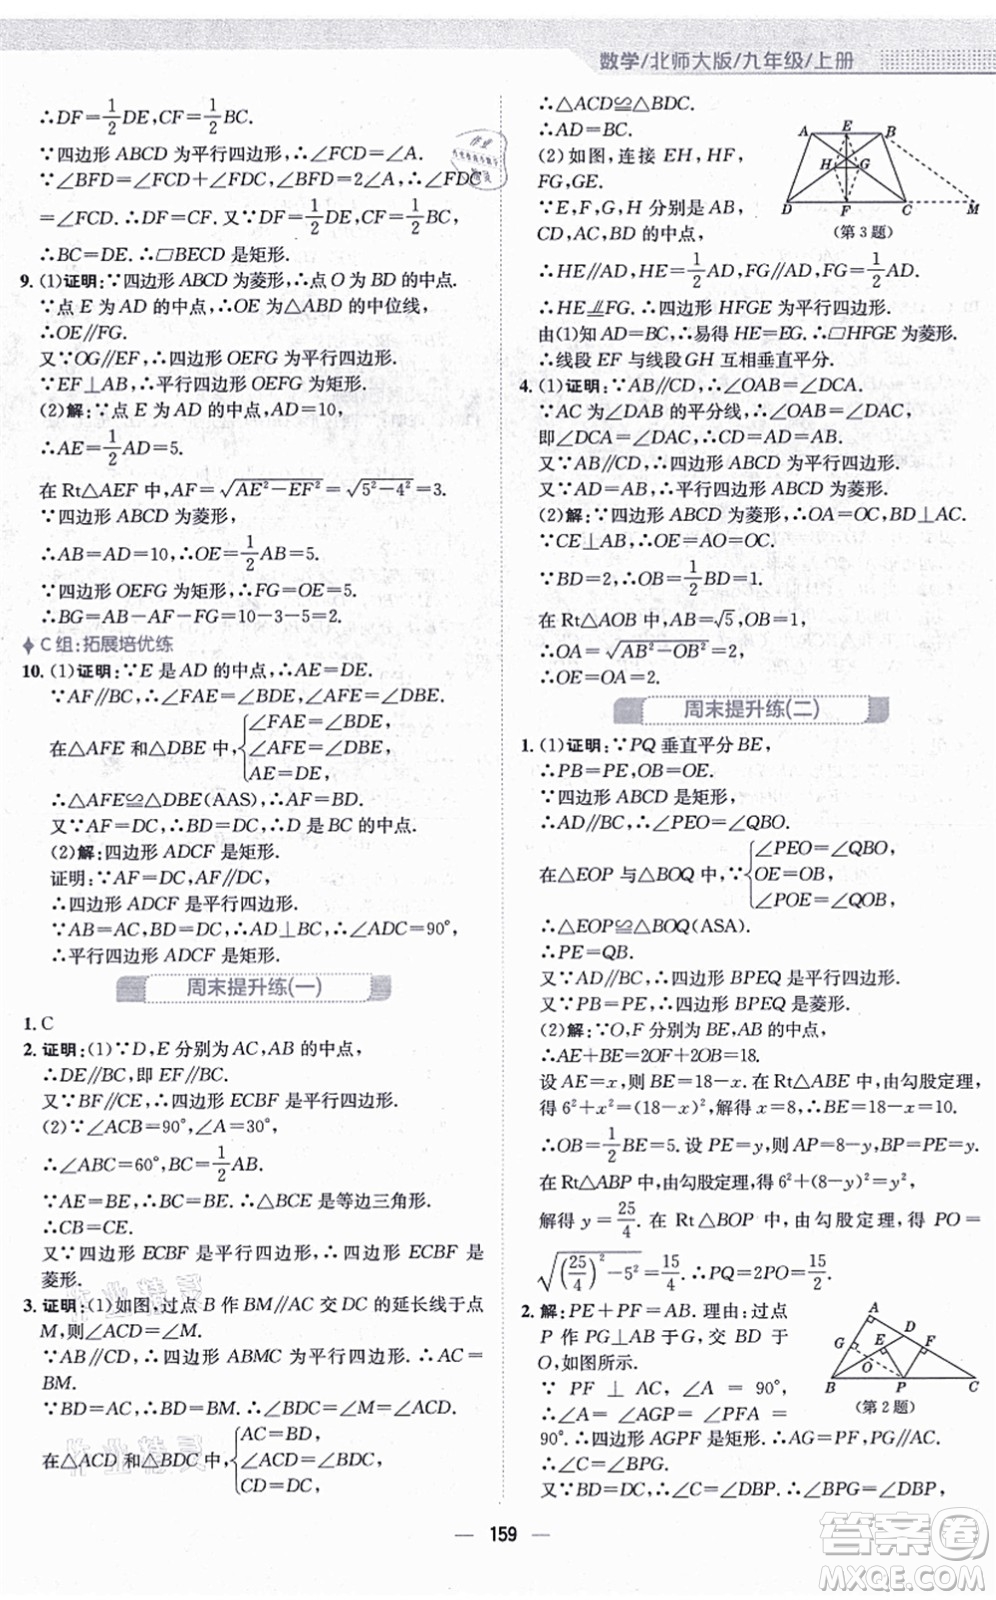 数学/北师大版/九年级/上册
∴DF=1/2DE,CF=1/2BC.
∵四边形 ABCD 为平行四边形,∴∠FCD=∠A.
∵∠BFD=∠FCD+∠FDC=2∠A,∴∠FDC
=∠FCD.∴DF=CF.又∵DF=1/2DE,CF=1/2BC,
∴BC=DE.∴▱BECD 是矩形.
9. (1)证明:∵四边形 ABCD 为菱形,∴点 O 为 BD 的中点.
∵点 E 为 AD 的中点,∴OE 为△ABD 的中位线,
∴OE∥FG.
又∵OG∥EF,∴四边形 OEFG 为平行四边形.
∵EF⊥AB,∴平行四边形 OEFG 为矩形.
(2)解:∵点 E 为 AD 的中点,AD=10,
∴AE=1/2AD=5.
在 Rt△AEF 中,AF=√(AE²-EF²)=√(5²-4²)=3.
∵四边形 ABCD 为菱形,
∴AB=AD=10,∴OE=1/2AB=5.
∵四边形 OEFG 为矩形,∴FG=OE=5.
∴BG=AB-AF-FG=10-3-5=2.
C 组:拓展培优练
10. (1)证明:∵E 是 AD 的中点,∴AE=DE.
∵AF∥BC,∴∠FAE=∠BDE,∠AFE=∠DBE.
在△AFE 和△DBE 中,{∠FAE=∠BDE,
∠AFE=∠DBE,
AE=DE,
∴△AFE≌△DBE(AAS),∴AF=BD.
又∵AF=DC,∴BD=DC,∴D 是 BC 的中点.
(2)解:四边形 ADCF 是矩形.
证明:∵AF=DC,AF∥DC,
∴四边形 ADCF 是平行四边形.
∵AB=AC,BD=DC,∴AD⊥BC,∴∠ADC=90°,
∴平行四边形 ADCF 是矩形.
周末提升练(一)
1. C
2. 证明:(1)∵D,E 分别为 AC,AB 的中点,
∴DE∥BC,即 EF∥BC.
又∵BF∥CE,∴四边形 ECBF 是平行四边形.
(2)∵∠ACB=90°,∠A=30°,
∴∠ABC=60°,BC=1/2AB.
∵AE=BE,∴BC=BE,∴△BCE 是等边三角形.
∴CB=CE.
又∵四边形 ECBF 是平行四边形,∴四边形 ECBF 是
菱形.
3. 证明:(1)如图,过点 B 作 BM∥AC 交 DC 的延长线于点
M,则∠ACD=∠BMD.
∵AB∥CD,∴四边形 ABMC 为平行四边形.∴AC=
BM.
∵BD=AC,∴BD=BM,∴∠BDC=∠BMD=∠ACD.
在△ACD 和△BDC 中,{AC=BD,
∠ACD=∠BDC,
CD=DC,
∴△ACD≌△BDC.
∴AD=BC.
(2)如图,连接 EH,HF,
FG,GE.
∵E,F,G,H 分别是 AB,
CD,AC,BD 的中点,
A
E
B
H
G
D
F
C
M
(第 3 题)
∴HE∥AD,HE=1/2AD,FG∥AD,FG=1/2AD.
∴HE∥=FG.∴四边形 HFGE 为平行四边形.
由(1)知 AD=BC,∴易得 HE=EG.∴▱HFGE 为菱形.
∴线段 EF 与线段GH 互相垂直平分.
4. (1)证明:∵AB∥CD,∴∠OAB=∠DCA.
∵AC 为∠DAB 的平分线,∴∠OAB=∠DAC,
即∠DCA=∠DAC,∴CD=AD=AB.
又∵AB∥CD,∴四边形 ABCD 是平行四边形.
又∵AD=AB,∴四边形 ABCD 是菱形.
(2)解:∵四边形 ABCD 是菱形,∴OA=OC,BD⊥AC.
∵CE⊥AB,∴OE=OA=OC.
∵BD=2,∴OB=1/2BD=1.
在 Rt△AOB 中,AB=√5,OB=1,
∴OA=√(AB²-OB²)=2.
∴OE=OA=2.
周末提升练(二)
1. (1)证明:∵PQ 垂直平分 BE,
∴PB=PE,OB=OE.
∵四边形 ABCD 是矩形,
∴AD∥BC,∴∠PEO=∠QBO.
在△EOP 与△BOQ 中,∵{∠PEO=∠QBO,
OE=OB,
∠POE=∠QOB,
∴△EOP≌△BOQ(ASA).
∴PE=QB.
又∵AD∥BC,∴四边形 BPEQ 是平行四边形.
又∵PB=PE,∴四边形 BPEQ 是菱形.
(2)解:∵O,F 分别为 BE,AB 的中点,
∴AE+BE=2OF+2OB=18.
设 AE=x,则 BE=18-x.在 Rt△ABE 中,由勾股定理,
得 6²+x²=(18-x)²,解得 x=8,∴BE=18-x=10.
∴OB=1/2BE=5.设 PE=y,则 AP=8-y,BP=y.
在 Rt△ABP 中,由勾股定理,得 6²+(8-y)²=y²,
解得 y=25/4.在 Rt△BOP 中,由勾股定理,得 PO=
√((25/4)²-5²)=15/4.∴PQ=2PO=15/2.
2. 解:PE+PF=AB.理由:过点
P 作 PG⊥AB于G,交 BD 于
O,如图所示.
∵ PF ⊥ AC,∠A = 90°,
∴∠A =∠AGP =∠PFA =
90°.∴四边形 AGPF 是矩形.
∴∠C=∠BPG.
又∵BD=DC,∴∠C=∠PBD,∴∠BPG=∠PBD,
A
D
G
E
F
O
B
P
C
(第 2 题)
159
答案卷
MXQE.COM